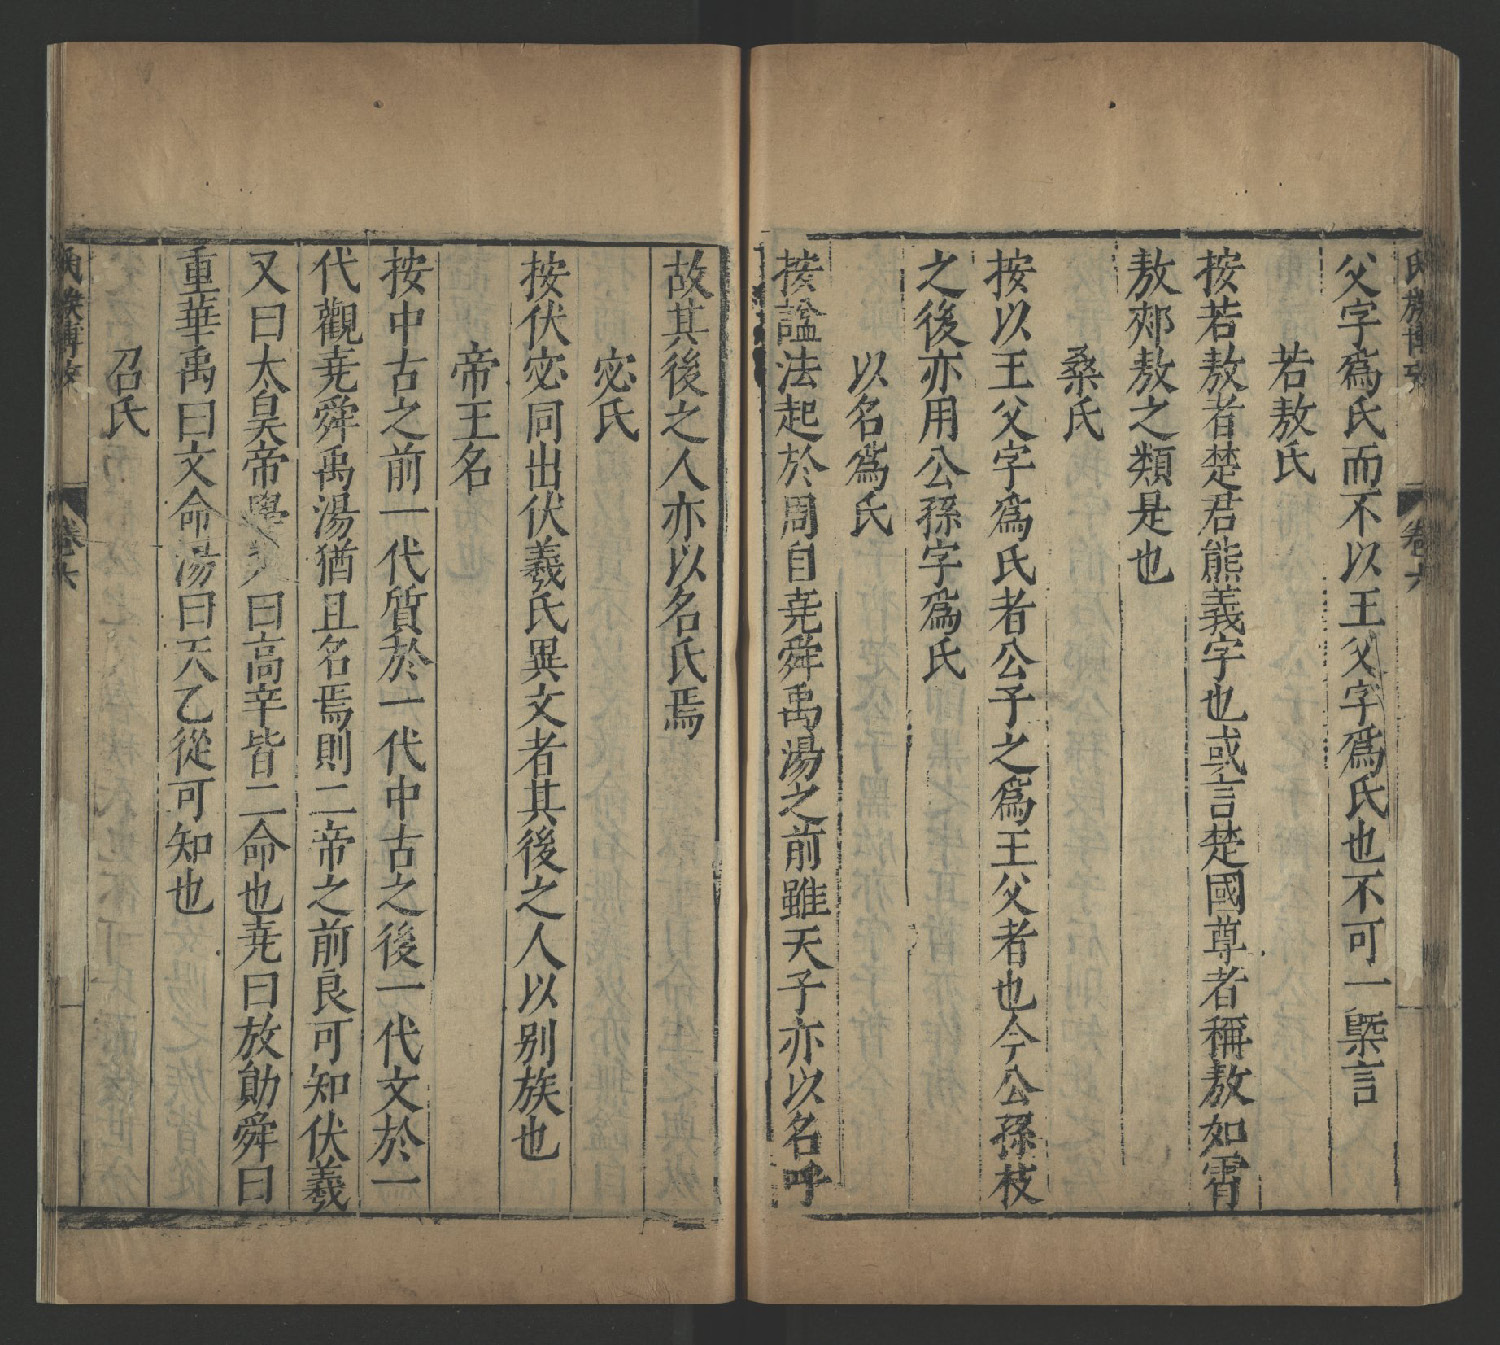 氏族博攷 卷六
父字爲氏而不以王父字爲氏也不可一槩言
若敖氏
按若敖者楚君熊義字也或言楚國尊者稱敖如霄
敖郟敖之類是也
桑氏
按以王父字爲氏者公子之爲王父者也今公孫枝
之後亦用公孫字爲氏
以名爲氏
按謚法起於周自尭舜禹湯之前雖天子亦以名呼
故其後之人亦以名氏焉
宓氏
按伏宓同出伏羲氏異文者其後之人以别族也
帝王名
按中古之前一代質於一代中古之後一代文於一
代觀尭舜禹湯猶且名焉則二帝之前良可知伏羲
又曰太昊帝嚳又曰高辛皆二命也尭曰放勛舜曰
重華禹曰文命湯曰天乙從可知也
召氏
氏族博攷 卷六